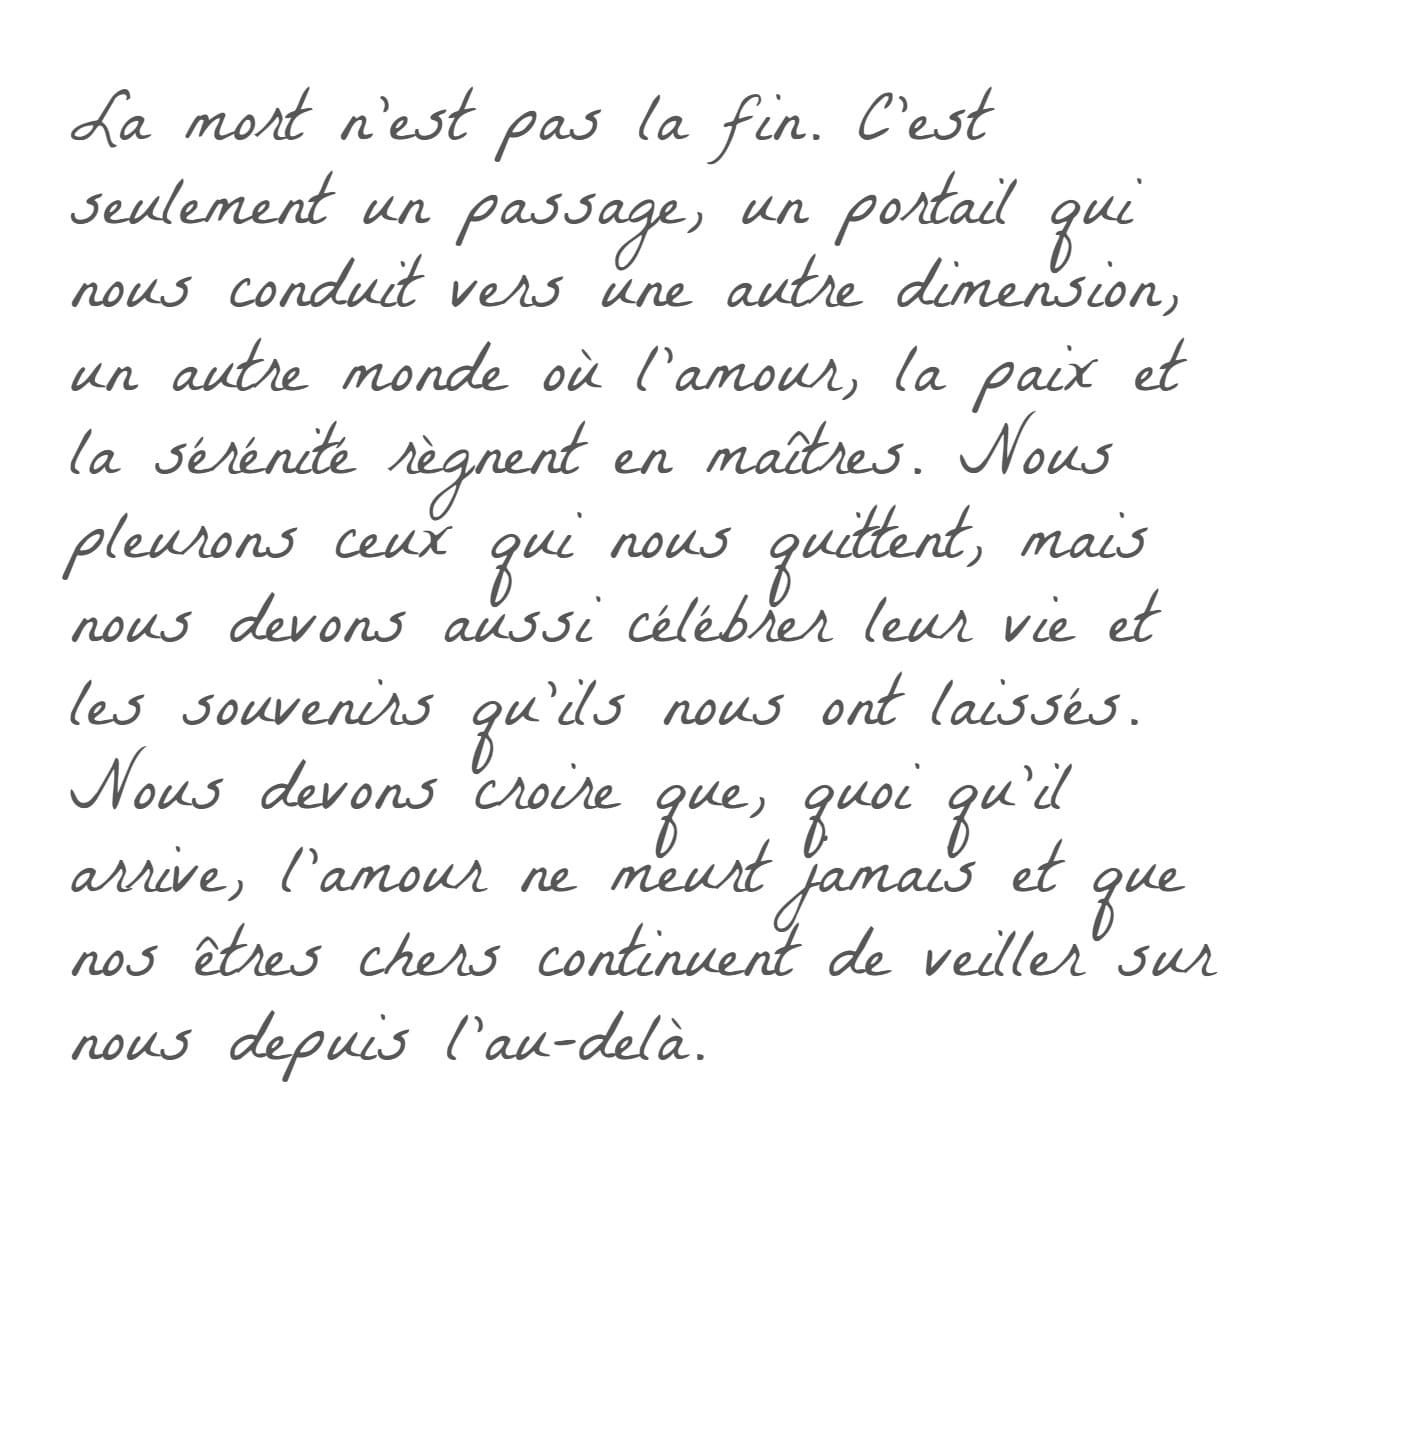 La mort n'est pas la fin. C'est
seulement un passage, un portail qui
nous conduit vers une autre dimension,
un autre monde où l'amour, la paix et
la sérénité règnent en maîtres. Nous
pleurons ceux qui nous quittent, mais
nous devons aussi célébrer leur vie et
les souvenirs qu'ils nous ont laissés.
Nous devons croire que, quoi qu'il
arrive, l'amour ne meurt jamais et que
nos êtres chers continuent de veiller sur
nous depuis l'au-delà.